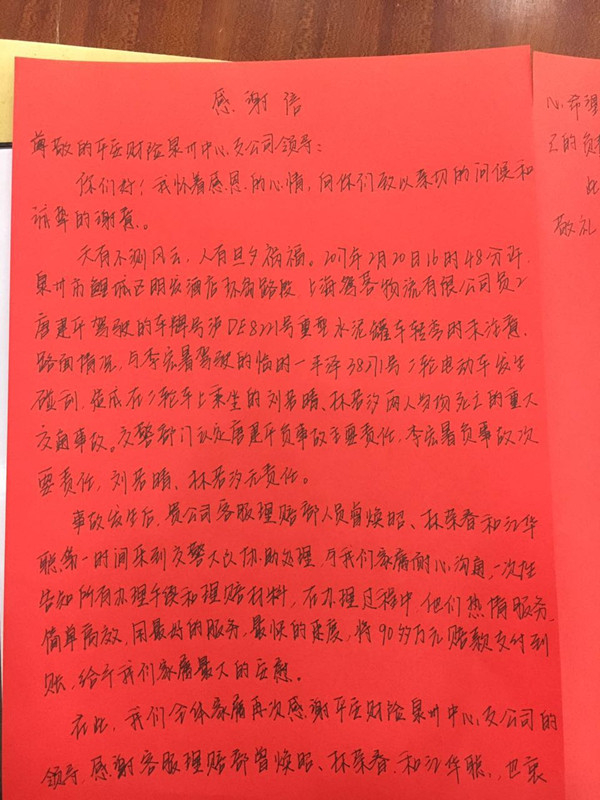 感谢信
尊敬的平安财险泉州中心支公司领导：
你们好！我怀着感恩的心情，向你们致以亲切的问候和
诚挚的谢意。
天有不测风云，人有旦夕祸福。2017年2月20日16时48分许，
泉州市鲤城区明发酒店环岛路段，上海驾茗物流有限公司员工
唐建开驾驶的车牌号沪DE8221号重型水泥罐车转弯时未注意
路面情况，与李宏暑驾驶的临时一平泽3871号二轮电动车发生
碰刮，造成在二轮车上乘坐的刘若晴、林若汐两人当场死亡的重大
交通事故。交警部门认定唐建开负事故主要责任，李宏暑负事故次
要责任，刘若晴、林若汐无责任。
事故发生后，贵公司客服理赔部人员曾焕昭、林荣春和江华
聪第一时间来到交警大队协助处理，与我们家属耐心沟通，一次性
告知所有办理手续和理赔材料，在办理过程中，他们热情服务，
简单高效，用最好的服务，最快的速度，将90多万元赔款支付到
账，给予我们家属最大的安慰。
在此，我们全体家属再次感谢平安财险泉州中心支公司的
领导，感谢客服理赔部曾焕昭、林荣春、和江华聪，也衷
心希望
的负
此
敬礼